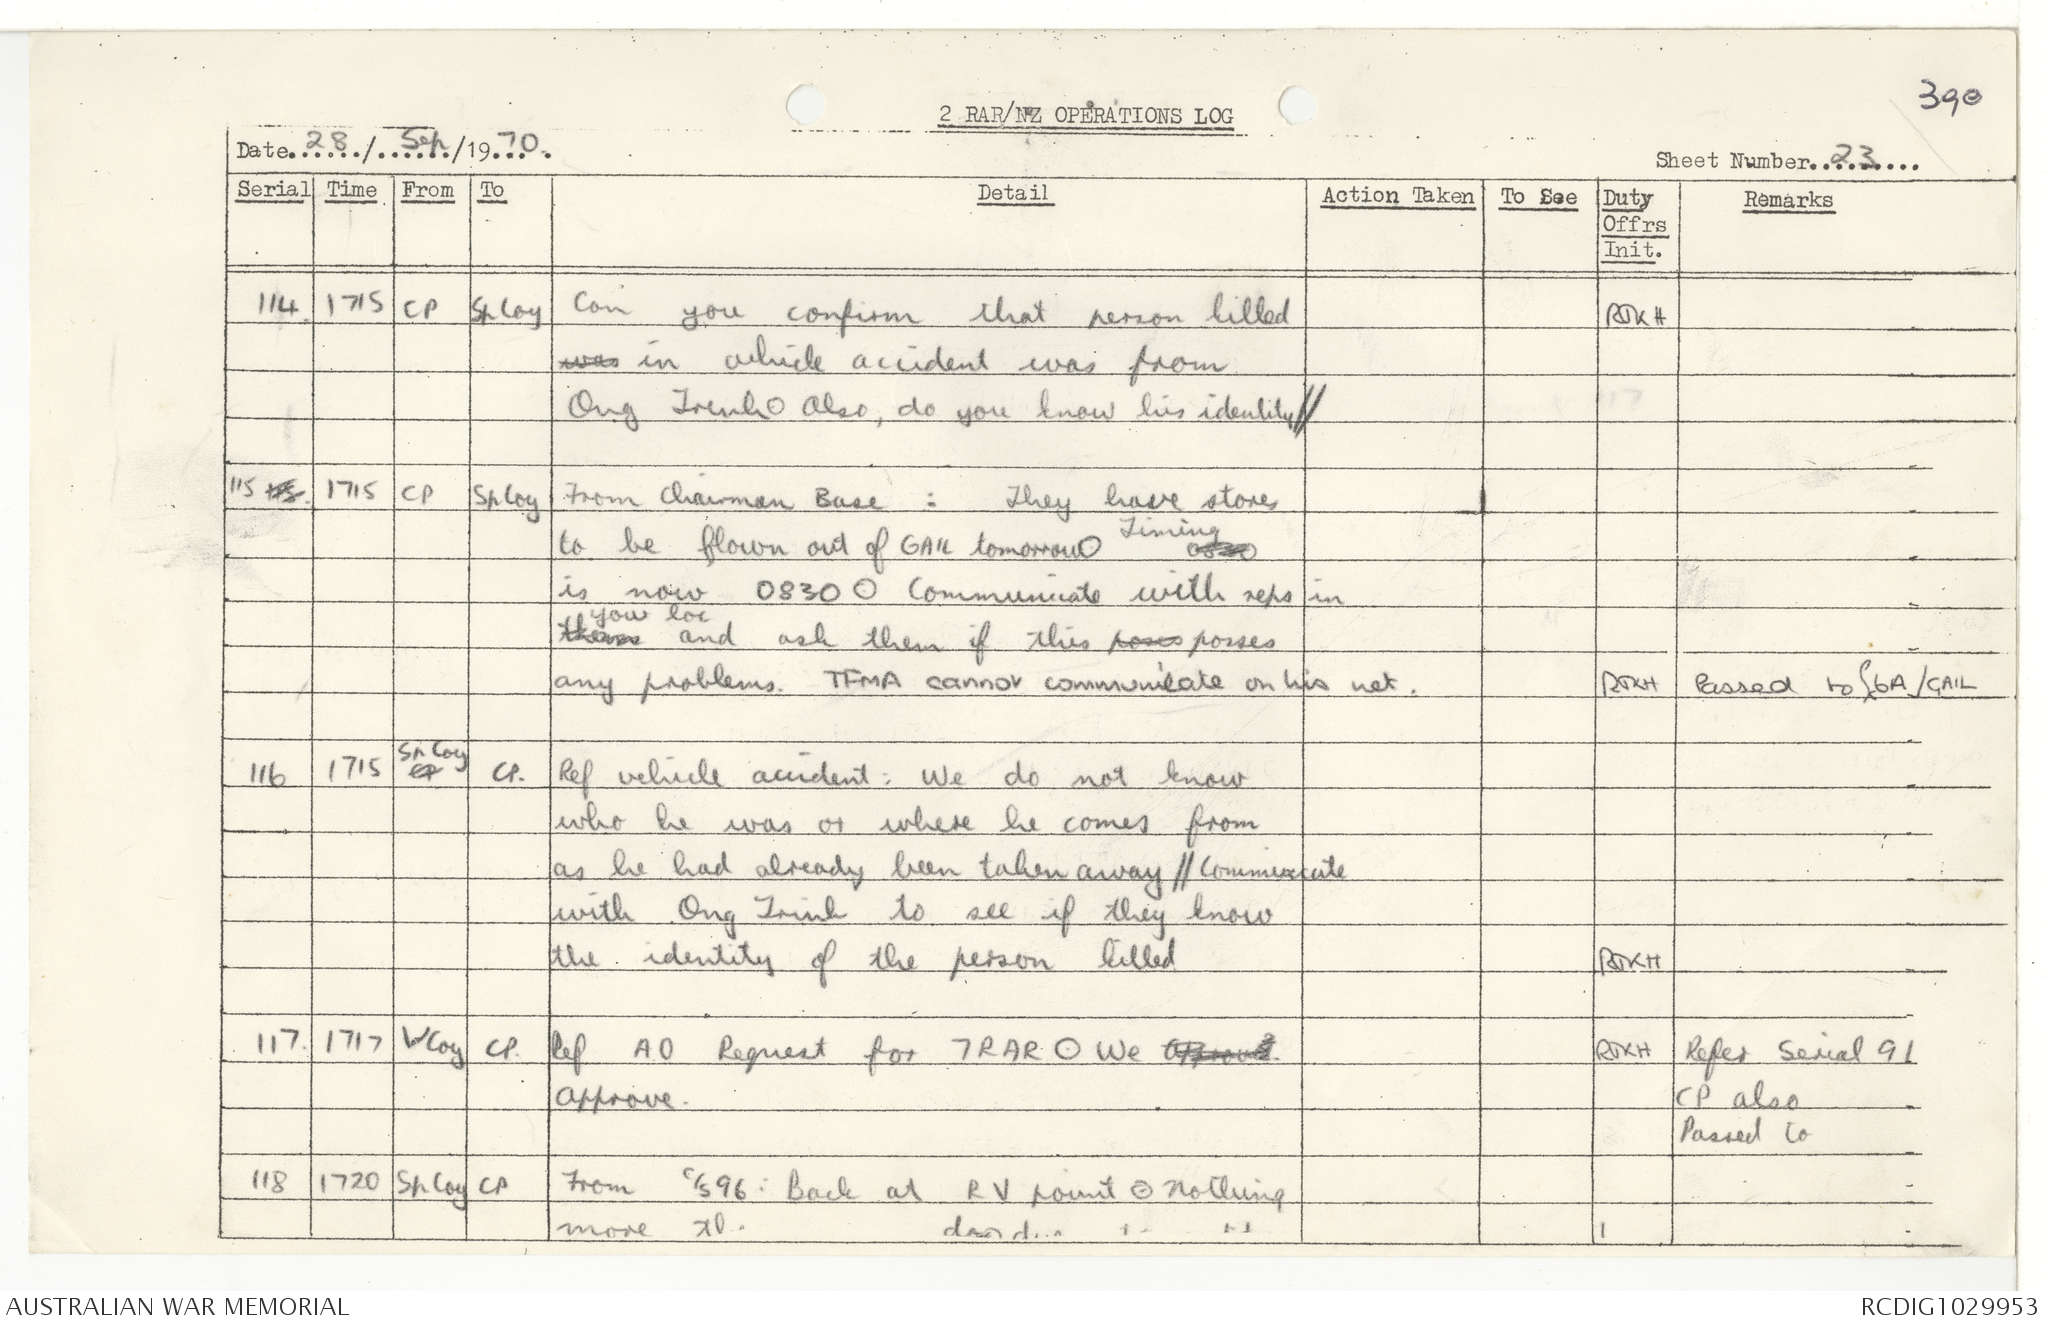 390
2 RAR/NZ OPERATIONS LOG
Date...28.../...Sep.../19.70.
Sheet Number..23.....
Serial Time From To Detail Action Taken To See Duty Offrs Init. Remarks
114. 1715 CP Sp Coy Can you confirm that person killed RJKH
was in vehicle accident was from
Ong Trinh ⊙ Also, do you know his identity //
115 1715 CP Sp Coy From Chairman Base : They have stores
to be flown out of GAIL tomorrow ⊙ Timing 0830
is now 0830 ⊙ Communicate with reps in
you loc
and ask them if this poses posses
any problems. TFMA cannot communicate on his net. RJKH Passed to 6A/GAIL
116 1715 Sp Coy CP CP. Ref vehicle accident: We do not know
who he was or where he comes from
as he had already been taken away // Communicate
with Ong Trinh to see if they know
the identity of the person killed RJKH
117. 1717 V Coy CP. Ref AO Request for 7RAR ⊙ We RJKH Refer Serial 91
approve. CP also
Passed to
118 1720 Sp Coy CP From c/s 96: Back at RV point ⊙ Nothing
more
AUSTRALIAN WAR MEMORIAL
RCDIG1029953